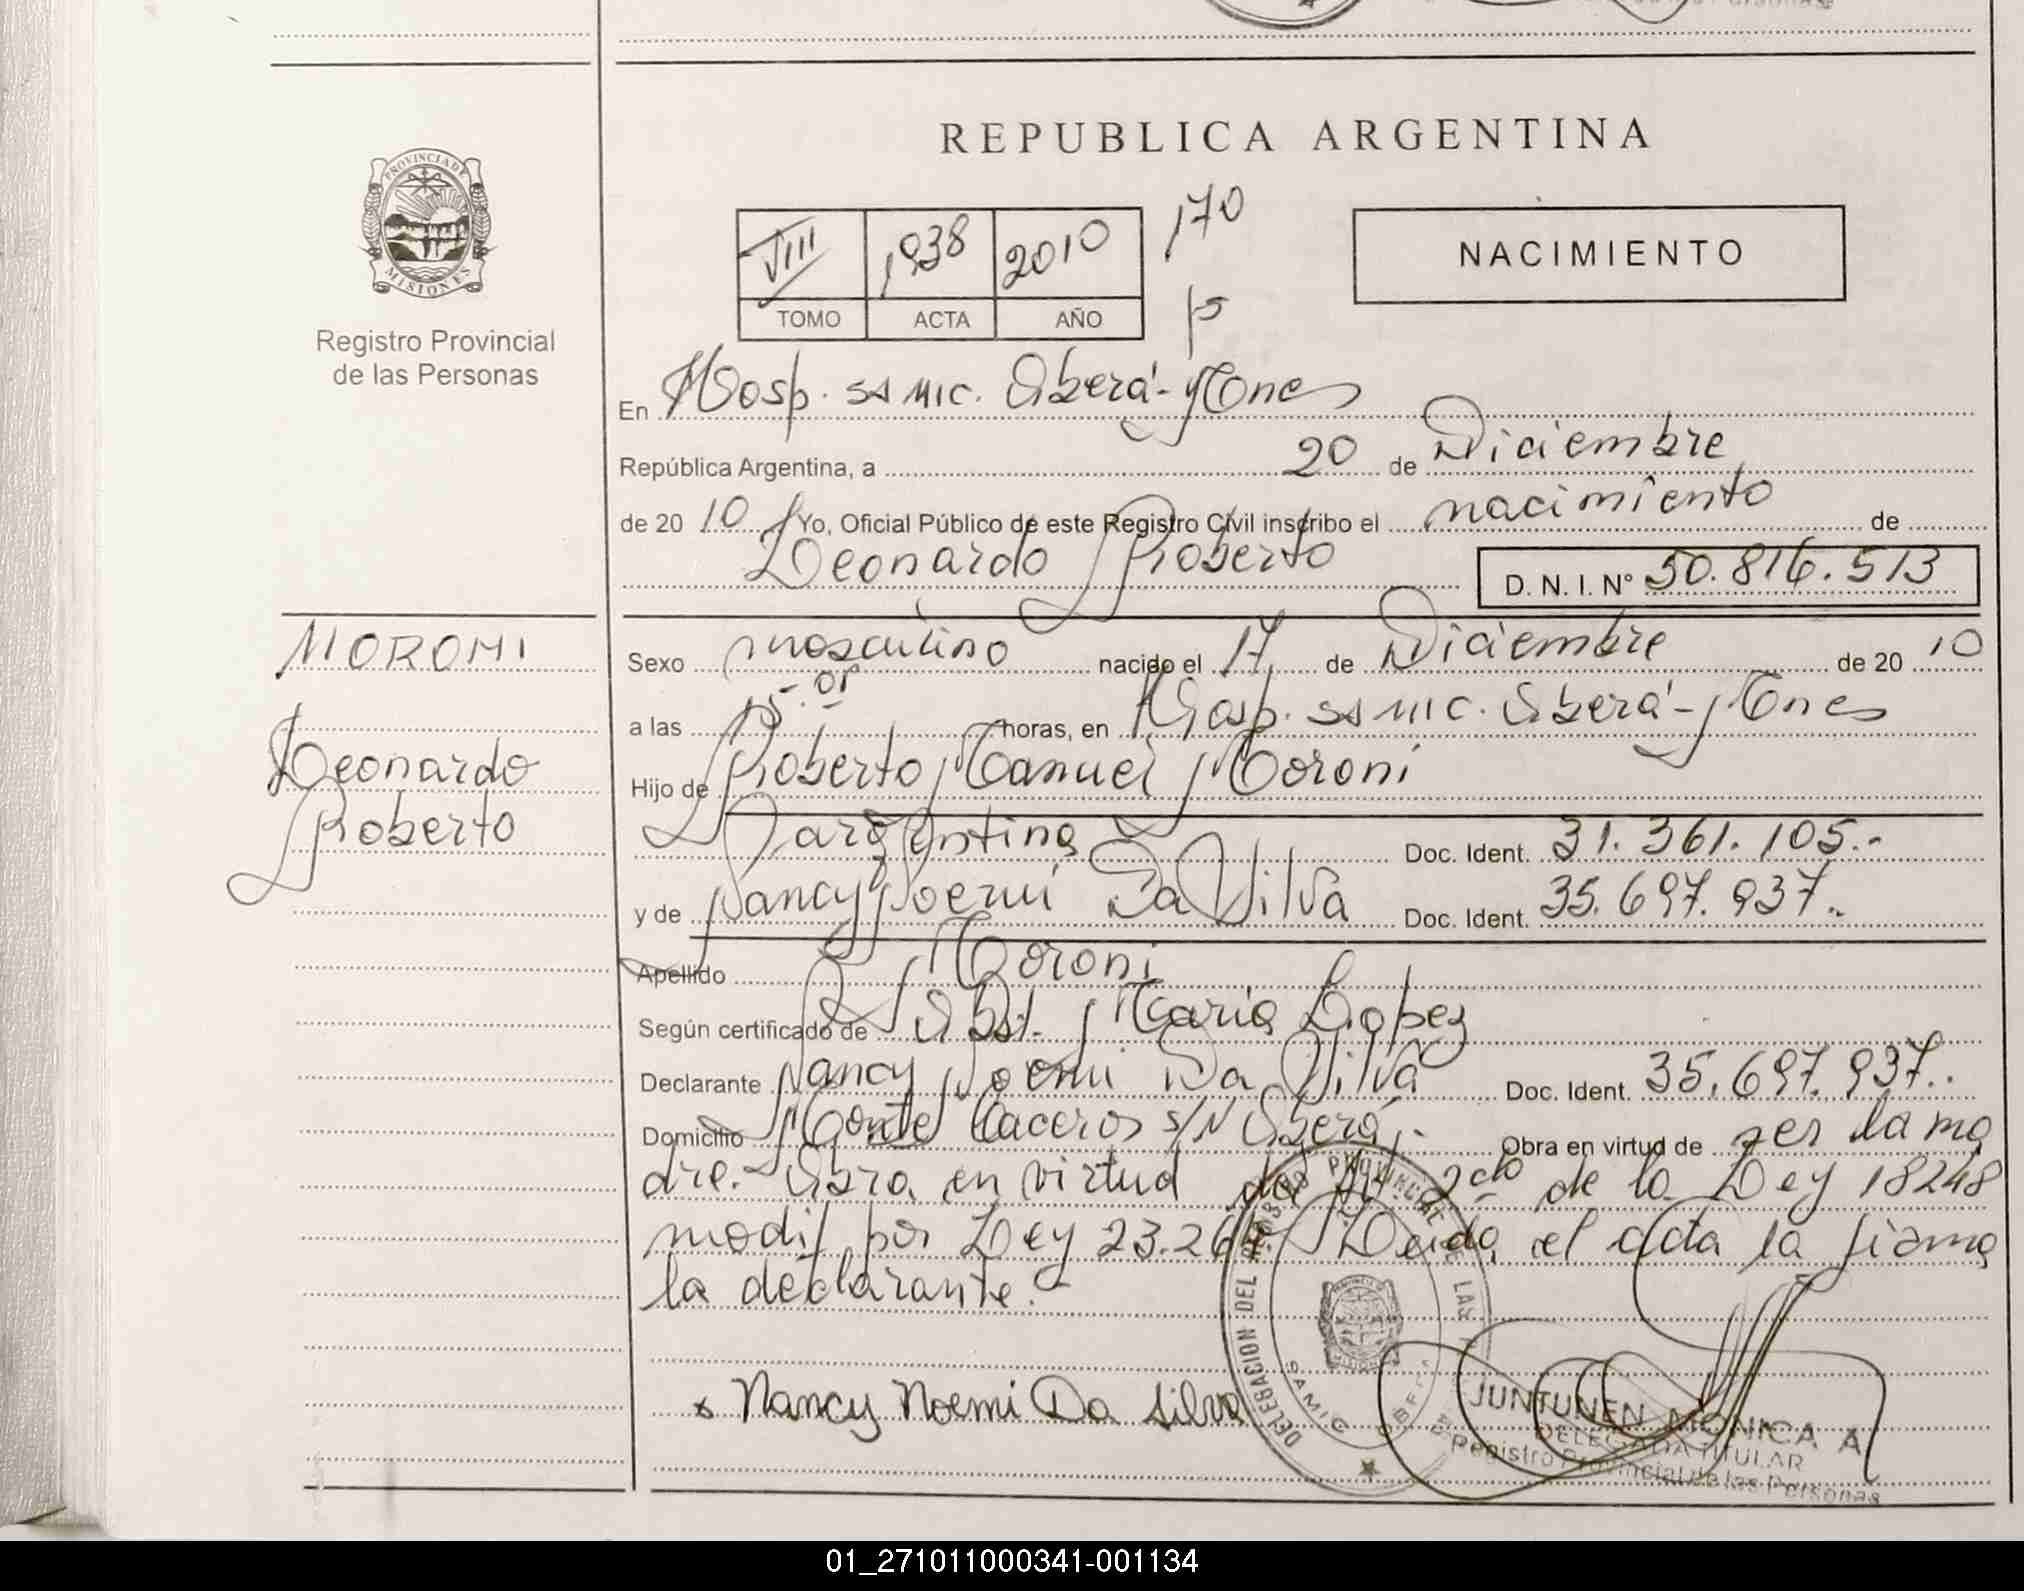 REPUBLICA ARGENTINA
PROVINCIA DE
MISIONES
Registro Provincial
de las Personas
VIII 1938 2010 170
TOMO ACTA AÑO
NACIMIENTO
En Hosp. SAMIC. Oberá - Mnes
República Argentina, a 20 de Diciembre
de 20 10 Yo, Oficial Público de este Registro Civil inscribo el nacimiento de
Leonardo Roberto D. N. I. N° 50.816.513
MORONI
Leonardo
Roberto
Sexo masculino nacido el 17 de Diciembre de 20 10
a las 15.05 horas, en Hosp. SAMIC. Oberá - Mnes
Hijo de Roberto Manuel Moroni
argentino Doc. Ident. 31.361.105.-
y de Nancy Noemi Da Silva Doc. Ident. 35.697.937.-
Apellido Moroni
Según certificado de Obst. Maria Lopez
Declarante Nancy Noemi Da Silva Doc. Ident. 35.697.937.-
Domicilio Monte Caceros s/N Oberá.- Obra en virtud de ser la ma
dre.- Obra en virtud del Art. 2cdo de la Ley 18248
modif por Ley 23.264 Leida el acta la firma
la declarante.-
x Nancy Noemi Da Silva
DELEGACION DEL REGISTRO PROVINCIAL DE LAS
SAMIC
JUNTUNEN MONICA A
DELEGADA TITULAR
Registro Provincial de las Personas
01_271011000341-001134